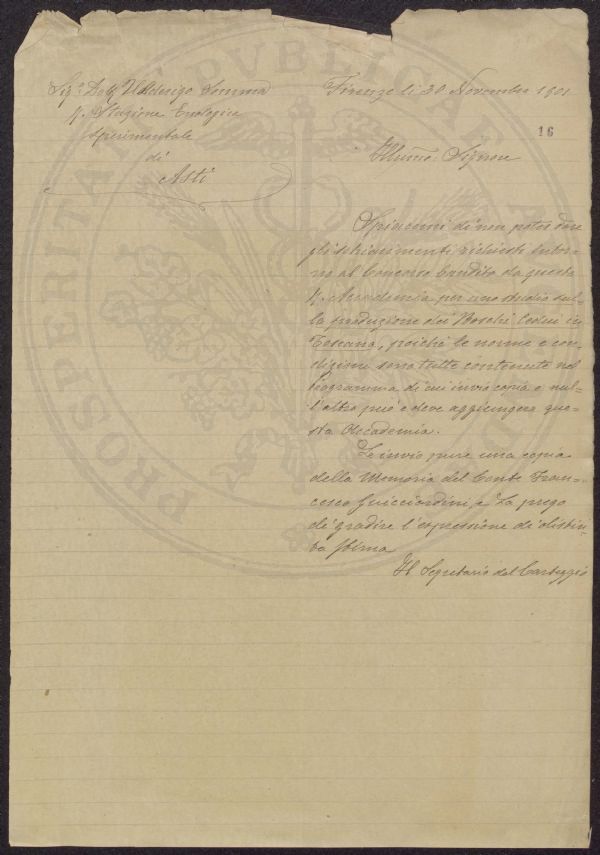 Sigr. Dott Ulderigo Somma
R. Stazione Enologica
Sperimentale
di
Asti
Firenze li 30 Novembre 1901
16
Illumo. Signore
Spiacemi di non poter dare
gli schiarimenti richiesti intor-
no al Concorso bandito da questa
R. Accademia per uno studio sul-
la produzione dei Boschi Cedui in
Toscana, poichè le norme e con-
dizioni sono tutte contenute nel
Programma di cui invio copia e nul-
l'altro può e deve aggiungere que-
sta Accademia.
Le invio pure una copia
della Memoria del Conte Fran-
cesco Guicciardini e La prego
di gradire l'espressione di distin-
ta stima
Il Segretario del Carteggio
PROSPERITATI PVBLICAE